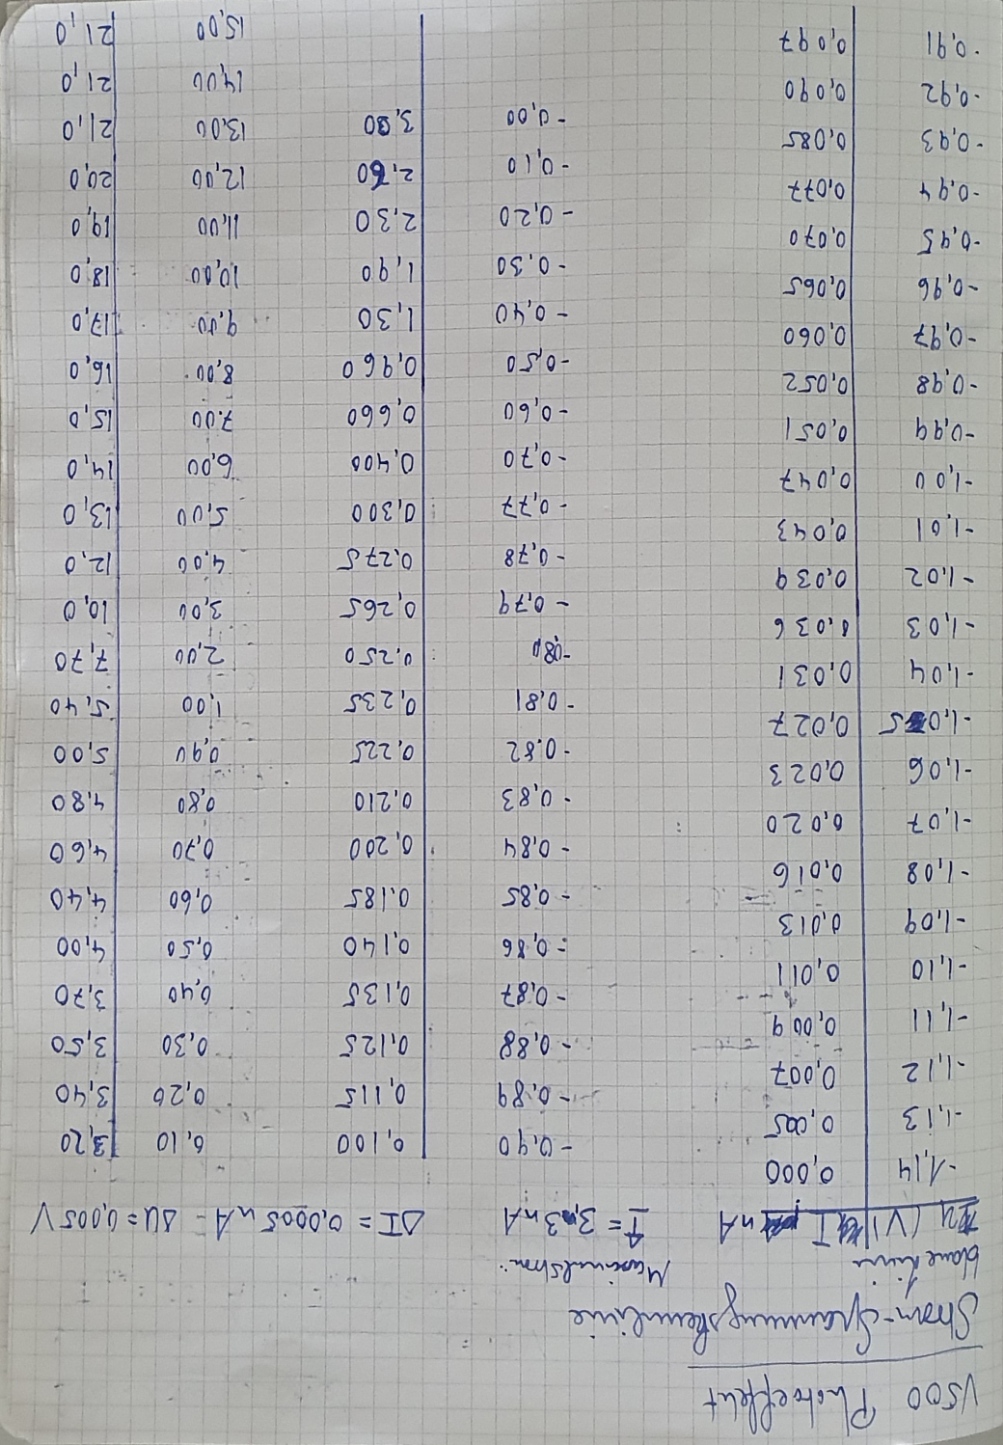 V500 Photoeffekt
Strom-Spannungskennlinie
blaue Linie
Maximalstrom:
U (V) I nA
I = 3,3 nA
ΔI = 0,0005 nA - ΔU = 0,005 V
-1,14 0,000
-1,13 0,005
-1,12 0,007
-1,11 0,009
-1,10 0,011
-1,09 0,013
-1,08 0,016
-1,07 0,020
-1,06 0,023
-1,05 0,027
-1,04 0,031
-1,03 0,036
-1,02 0,039
-1,01 0,043
-1,00 0,047
-0,99 0,051
-0,98 0,052
-0,97 0,060
-0,96 0,065
-0,95 0,070
-0,94 0,077
-0,93 0,085
-0,92 0,090
-0,91 0,097
-0,90 0,100
-0,89 0,115
-0,88 0,125
-0,87 0,135
-0,86 0,140
-0,85 0,185
-0,84 0,200
-0,83 0,210
-0,82 0,225
-0,81 0,235
-0,80 0,250
-0,79 0,265
-0,78 0,275
-0,77 0,300
-0,70 0,400
-0,60 0,660
-0,50 0,960
-0,40 1,30
-0,30 1,90
-0,20 2,30
-0,10 2,60
-0,00
0,10 3,20
0,20 3,40
0,30 3,50
0,40 3,70
0,50 4,00
0,60 4,40
0,70 4,60
0,80 4,80
0,90 5,00
1,00 5,40
2,00 7,70
3,00 10,0
4,00 12,0
5,00 13,0
6,00 14,0
7,00 15,0
8,00 16,0
9,00 17,0
10,00 18,0
11,00 19,0
12,00 20,0
13,00 21,0
14,00 21,0
15,00 21,0